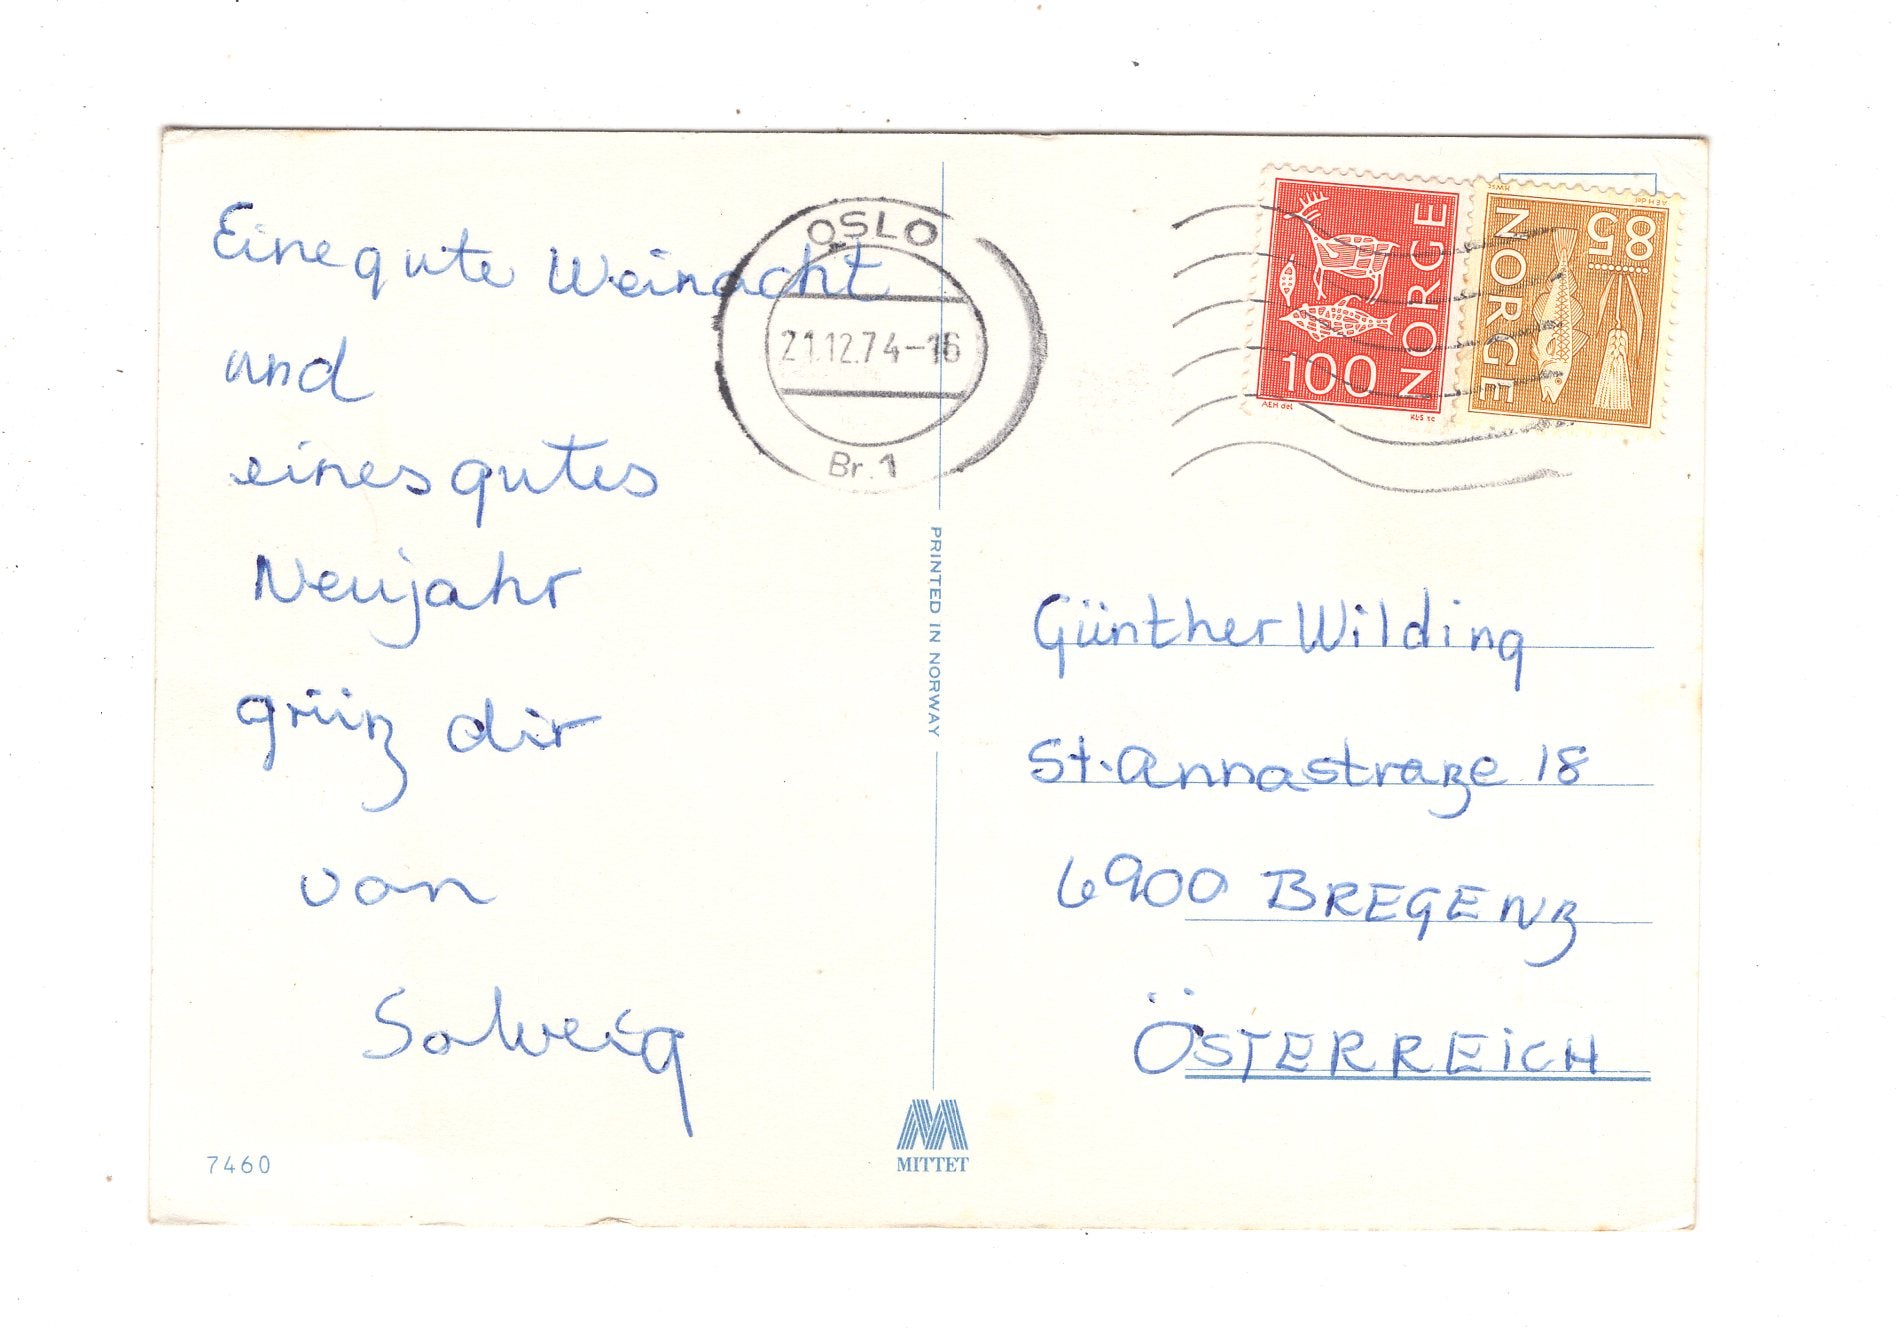 Eine gute Weinacht
und
eines gutes
Neujahr
grüß dir
von
Solveig
7460
OSLO
21.12.74-16
Br.1
PRINTED IN NORWAY
MITTET
NORGE
100
AEH del
KLS sc
NORGE
85
AEH del
Günther Wilding
St. Annastraße 18
6900 BREGENZ
ÖSTERREICH